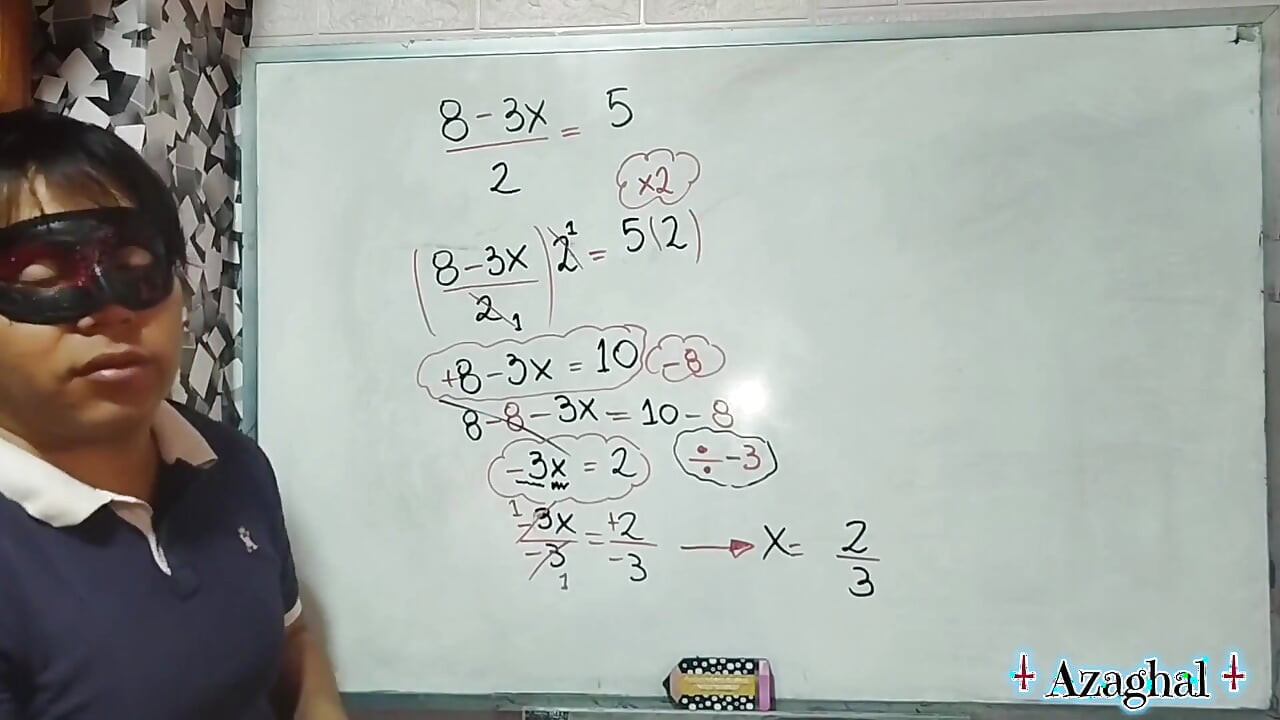 8 - 3x = 5
2
x2
(8 - 3x) 2 1 = 5(2)
2 1
+8 - 3x = 10 -8
8 - 8 - 3x = 10 - 8
-3x = 2 ÷ -3
1 -3x = +2 → x = 2
-3 1 -3 3
† Azaghal †